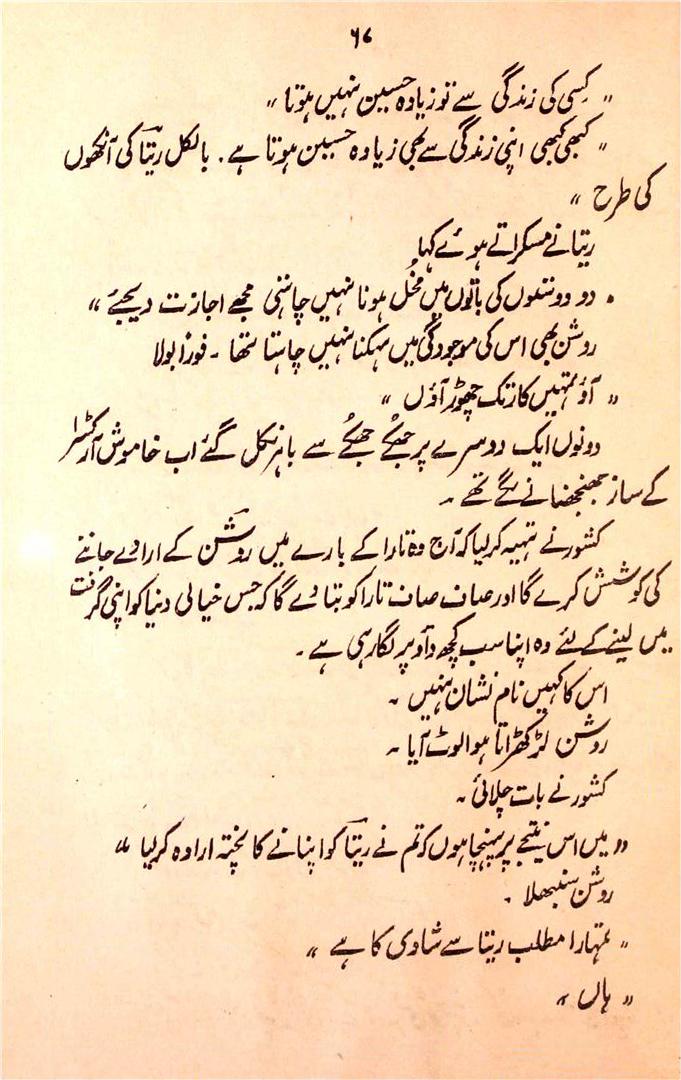 ۶۷
" کسی کی زندگی سے تو زیادہ حسین نہیں ہوتا "
" کبھی کبھی اپنی زندگی سے بھی زیادہ حسین ہوتا ہے ۔ بالکل ریتا کی آنکھوں
کی طرح "
ریتا نے مسکراتے ہوئے کہا
" دو دوستوں کی باتوں میں مخل ہونا نہیں چاہتی مجھے اجازت دیجئے "
روشن بھی اس کی موجودگی میں بہکنا نہیں چاہتا تھا ۔ فوراً بولا
" آؤ تمہیں کار تک چھوڑ آؤں "
دونوں ایک دوسرے پر جھکے جھکے سے باہر نکل گئے اب خاموش آرکسٹرا
کے ساز جھنجھنانے لگے تھے ۔
کشور نے تہیہ کر لیا کہ آج وہ تارا کے بارے میں روشن کے ارادے جاننے
کی کوشش کرے گا اور صاف صاف تارا کو بتا دے گا کہ جس خیالی دنیا کو اپنی گرفت
میں لینے کے لئے وہ اپنا سب کچھ داؤ پر لگا رہی ہے ۔
اس کا کہیں نام نشان نہیں ۔
روشن لڑکھڑاتا ہوا لوٹ آیا ۔
کشور نے بات چلائی ۔
" میں اس نتیجے پر پہنچا ہوں کہ تم نے ریتا کو اپنانے کا پختہ ارادہ کر لیا "
روشن سنبھلا ۔
" تمہارا مطلب ریتا سے شادی کا ہے "
" ہاں "